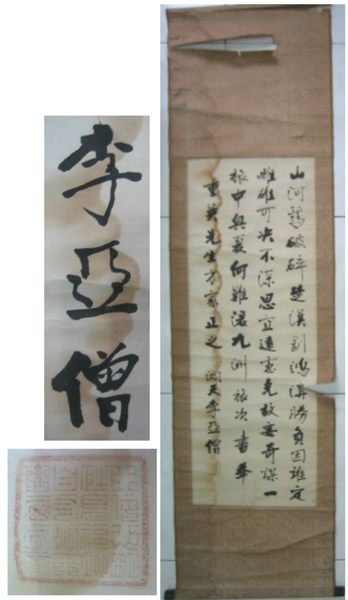 山河驚破碎楚漢判鴻溝勝負因誰定
雌雄可决不深思宜遠慮克敌奇謀一
振中興何難滾九洲 旅次書奉
重英先生方家正之 湖天李亞僧
李亞僧